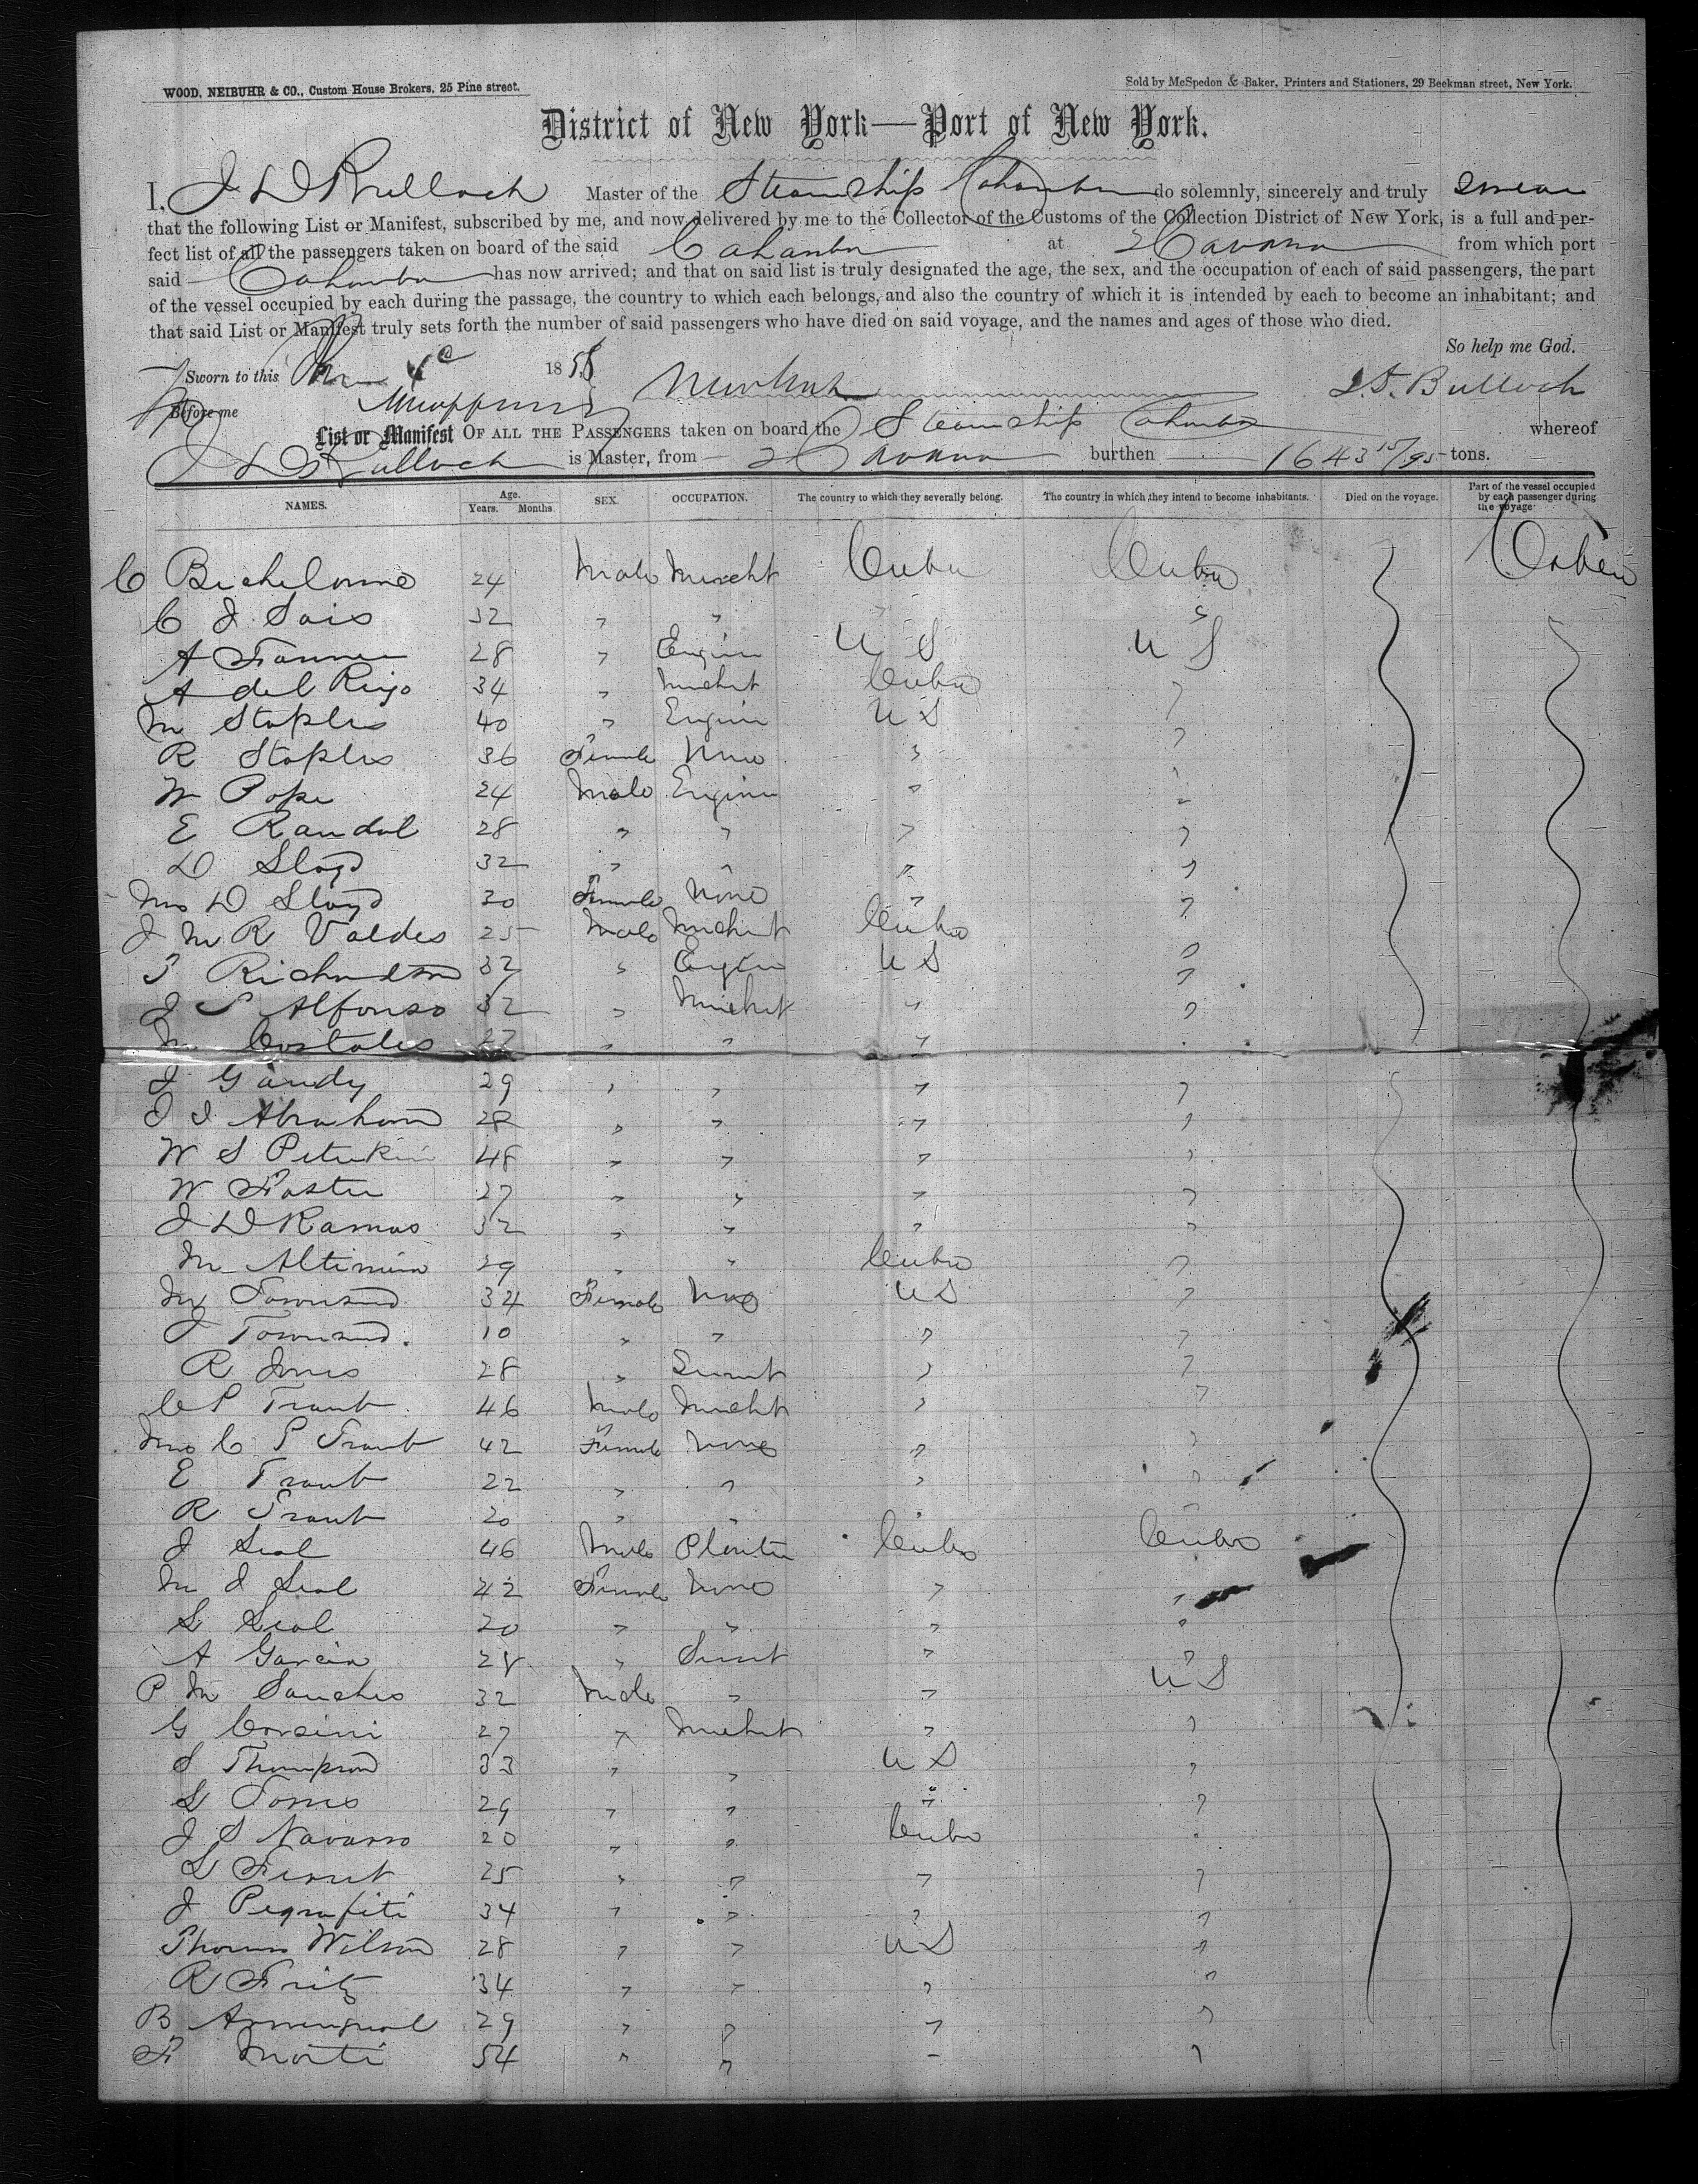 WOOD, NEIBUHR & CO., Custom House Brokers, 25 Pine street.
Sold by McSpedon & Baker, Printers and Stationers, 29 Beekman street, New York.
District of New York—Port of New York.
I, J D Bulloch Master of the Steamship Cahawba do solemnly, sincerely and truly swear
that the following List or Manifest, subscribed by me, and now delivered by me to the Collector of the Customs of the Collection District of New York, is a full and per-
fect list of all the passengers taken on board of the said Cahawba at Havana from which port
said Cahawba has now arrived; and that on said list is truly designated the age, the sex, and the occupation of each of said passengers, the part
of the vessel occupied by each during the passage, the country to which each belongs, and also the country of which it is intended by each to become an inhabitant; and
that said List or Manifest truly sets forth the number of said passengers who have died on said voyage, and the names and ages of those who died.
So help me God.
Sworn to this 4 1858
J. D. Bulloch
Before me
List or Manifest OF ALL THE PASSENGERS taken on board the Steamship Cahawba whereof
J D Bulloch is Master, from Havana burthen 1643 15/95 tons.
NAMES. Age. Years. Months. SEX. OCCUPATION. The country to which they severally belong. The country in which they intend to become inhabitants. Died on the voyage. Part of the vessel occupied by each passenger during the voyage
C 24 Male Mercht Cuba Cuba Cabin
C J Sais 32 " " " "
A 28 " Engin U S U S
A del Rijo 34 " Mercht Cuba "
M Staples 40 " Engin U S "
R Staples 36 Female None " "
W Pope 24 Male Engineer " "
E Randal 28 " " " "
D Lloyd 32 " " " "
Mrs D Lloyd 30 Female None " "
J M R Valdes 25 Male Mercht Cuba "
T Richardson 32 " Engin U S "
J S Alfonso 32 " Mercht " "
M Costales 27 " " " "
J Gandy 29 " " " "
J I Abraham 28 " " " "
W S Peterkin 48 " " " "
W Foster 27 " " " "
J D Ramos 32 " " " "
M 29 " " Cuba "
M Townsend 34 Female None U S "
J Townsend. 10 " " " "
R Jones 28 " Servant " "
C P Traub 46 Male Mercht " "
Mrs C P Traub 42 Female None " "
E Traub 22 " " " "
R Traub 20 " " " "
J Leal 46 Male Planter Cuba Cuba
M J Leal 42 Female None " "
L Leal 20 " " " "
A Garcia 28 " Servt " "
P M Sanches 32 Male " " U S
G Corsini 27 " Mercht " "
S Thompson 33 " " U S "
L Torres 29 " " " "
J S Navarro 20 " " Cuba "
L 25 " " " "
J 34 " " " "
Thomas Wilson 28 " " U S "
R Fritz 34 " " " "
B Armengual 29 " " " "
F Marti 54 " " " "